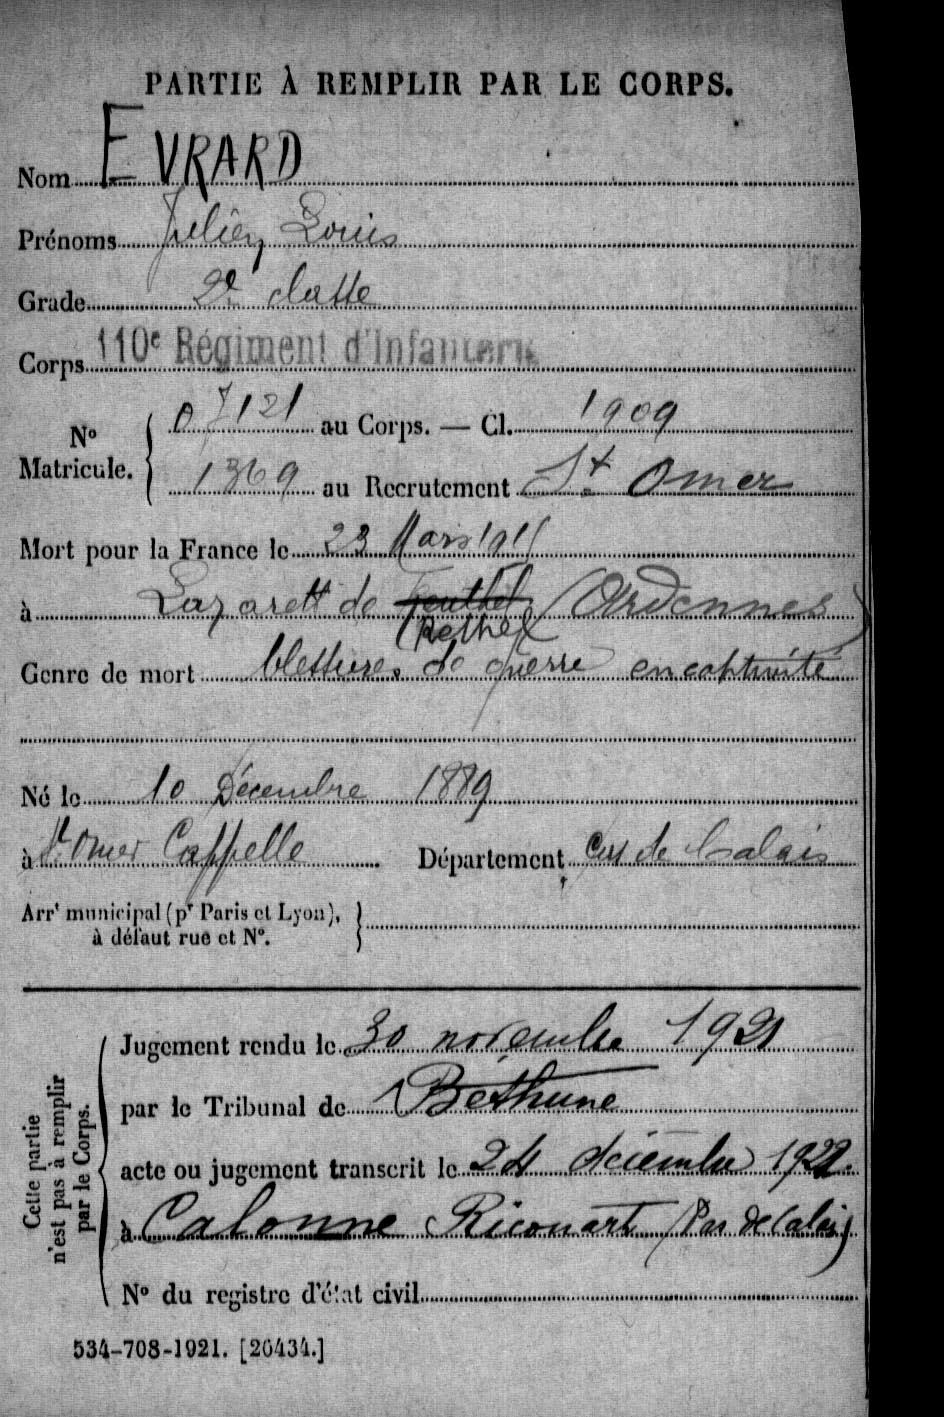 PARTIE À REMPLIR PAR LE CORPS.
Nom EVRARD
Prénoms Julien Louis
Grade 2e classe
Corps 110e Régiment d'Infanterie
No Matricule. 07121 au Corps. — Cl. 1909
1369 au Recrutement St Omer
Mort pour la France le 23 Mars 1915
à Lazarett de (Ardennes)
Rethel
Genre de mort blessures de guerre en captivité
Né le 10 Décembre 1889
à St Omer Cappelle Département Pas de Calais
Arrt municipal (pr Paris et Lyon),
à défaut rue et No.
Cette partie n'est pas à remplir par le Corps.
Jugement rendu le 30 novembre 1921
par le Tribunal de Béthune
acte ou jugement transcrit le 24 décembre 1921.
à Calonne Ricouart (Pas de Calais)
No du registre d'état civil
534-708-1921. [26434.]